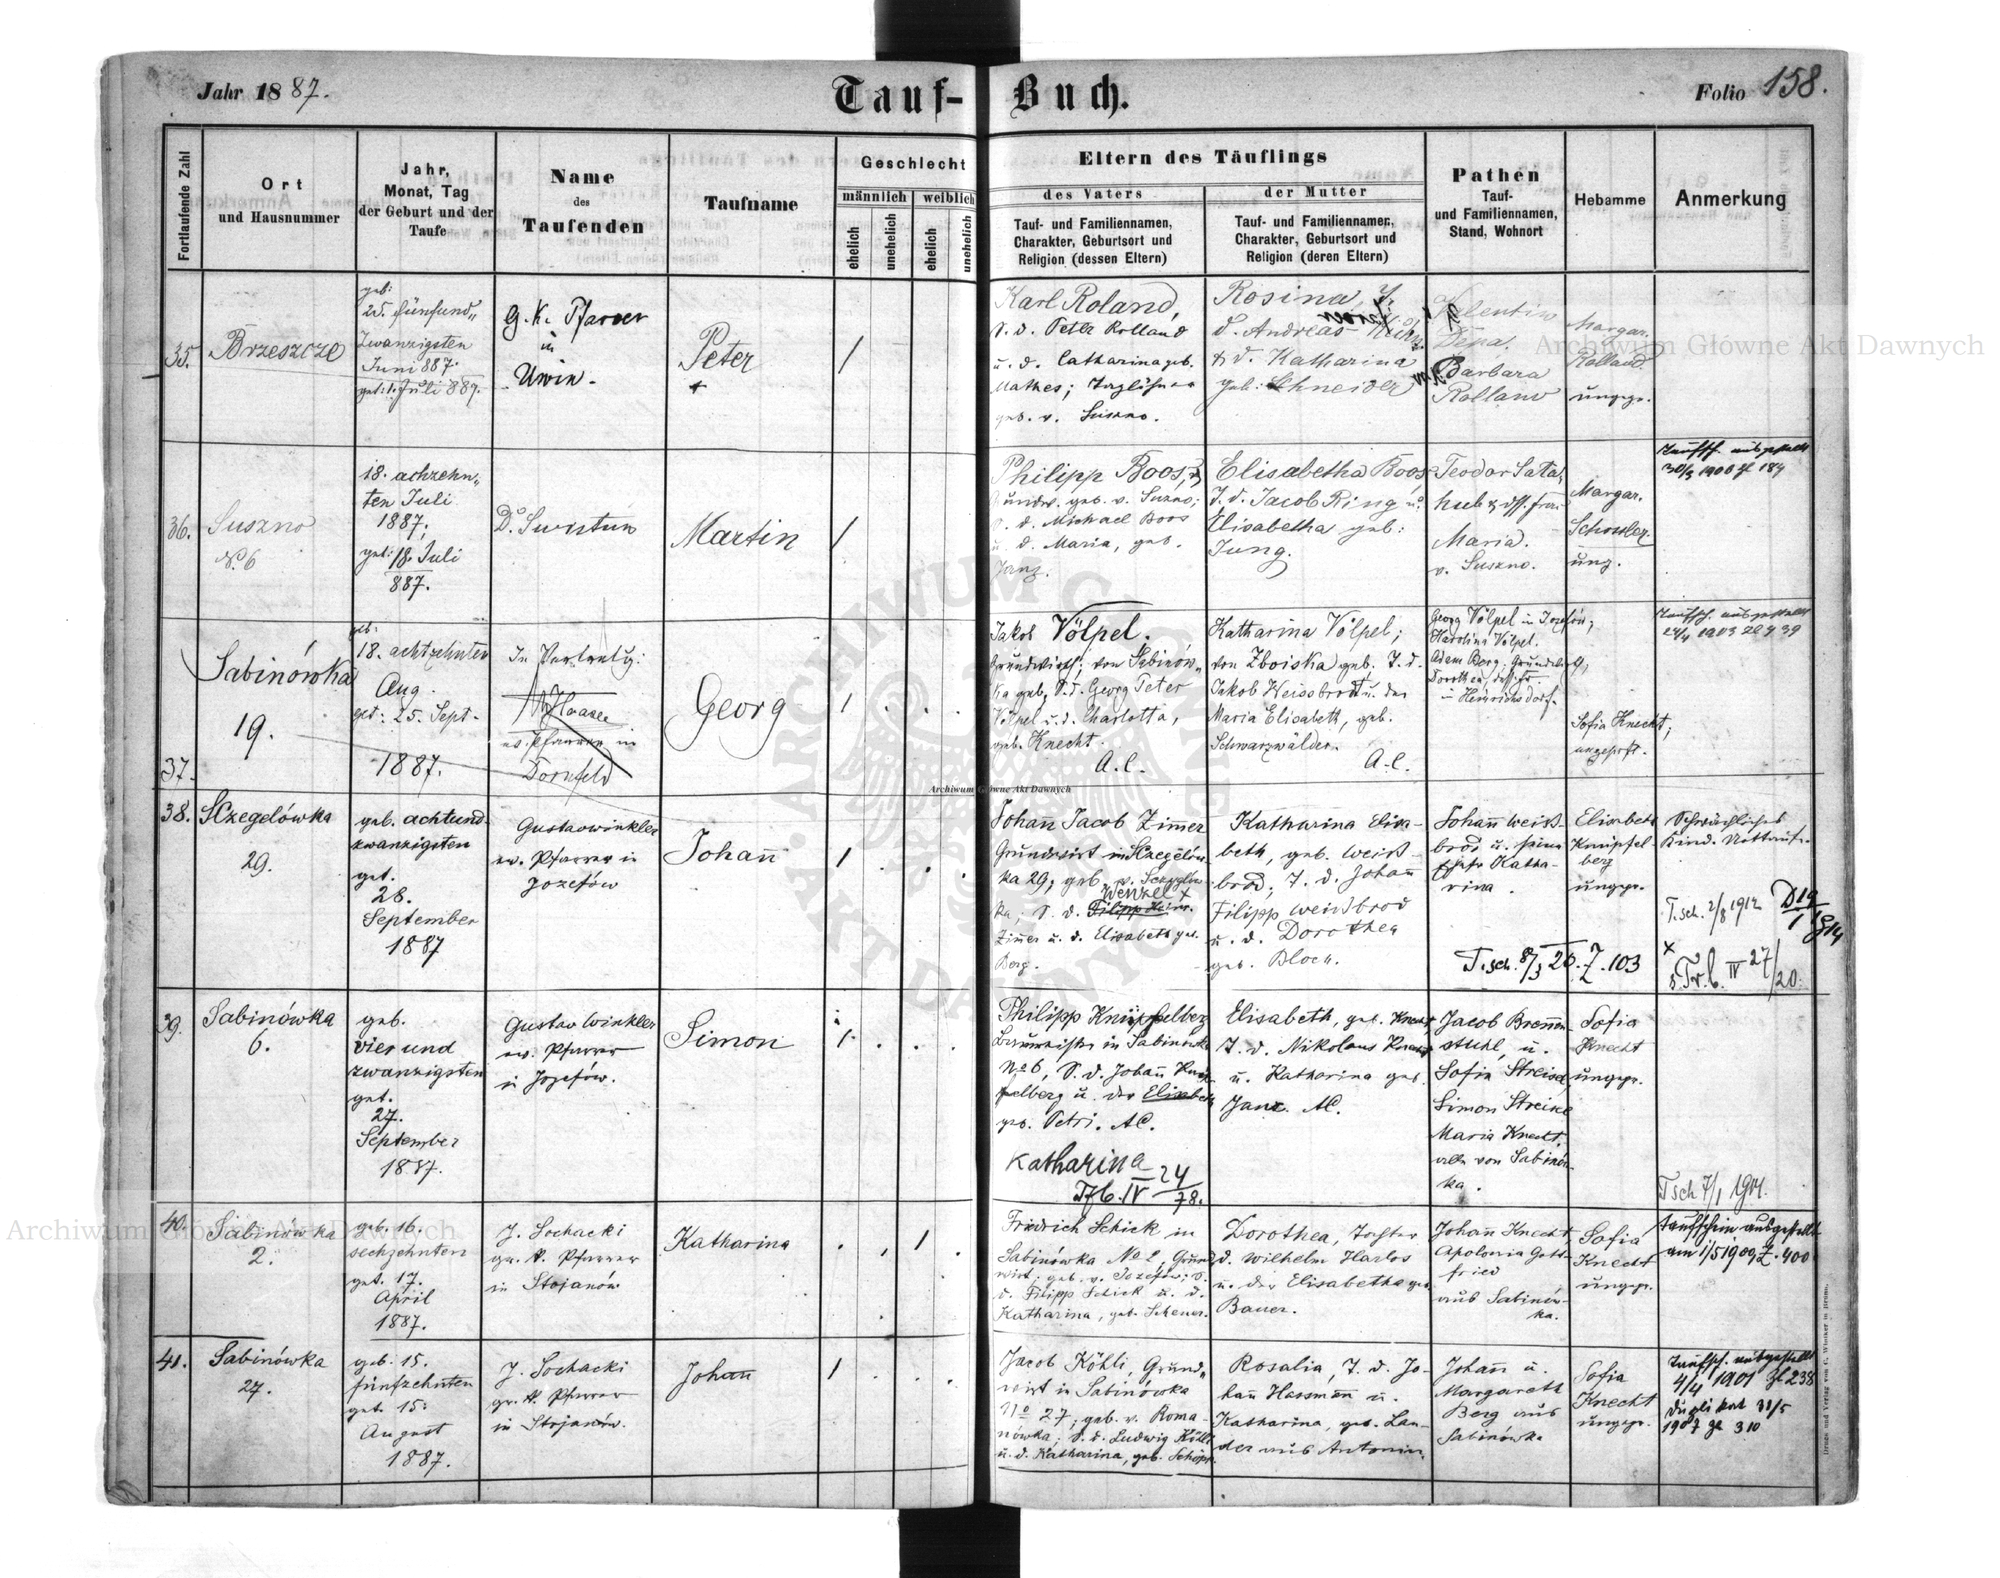 Jahr 1887.
Tauf-Buch.
Folio 158.
Fortlaufende Zahl
Ort
und Hausnummer
Jahr,
Monat, Tag
der Geburt und der
Taufe
Name
des
Taufenden
Taufname
Geschlecht
männlich
weiblich
ehelich
unehelich
ehelich
unehelich
Eltern des Täuflings
des Vaters
Tauf- und Familiennamen,
Charakter, Geburtsort und
Religion (dessen Eltern)
der Mutter
Tauf- und Familiennamen,
Charakter, Geburtsort und
Religion (deren Eltern)
Pathen
Tauf-
und Familiennamen,
Stand, Wohnort
Hebamme
Anmerkung
35.
Brzeszcze
geb:
25. fünfund„
zwanzigsten
Juni 887.
get: 1. Juli 887.
g. k. Pfarrer
in
Uwin.
Peter
+
/
Karl Roland,
S. d. Peter Rolland
u. d. Catharina geb.
Mathes; Taglöhner
geb. v. Suszno.
Rosina, T.
d. Andreas
& d. Katharina
geb: Schneider
Valentin
Depa.
Barbara
Rolland
Margar.
Rolland
ungepr.
36.
Suszno
No. 6
18. achzehn„
ten Juli
1887;
get: 18. Juli
887.
Do.
Martin
/
Philipp Boos,
Grundw. geb. v. Suszno;
S. d. Michael Boos
u. d. Maria, geb.
Janz.
Elisabetha Boos
T. d. Jacob Ring u.
Elisabetha geb:
Jung.
Teodor
Maria.
v. Suszno.
Margar.
ung.
Taufsch. ausgestellt
30/3 1906 Zl 184
37.
Sabinówka
19.
geb:
18. achtzehnten
Aug.
get: 25. Sept.
1887.
In Vertretg:
Haase
ev. Pfarrer in
Dornfeld
Georg
1 . . .
Jakob Völpel.
Grundwirth; von Sabinów„
ka geb, S. d. Georg Peter
Völpel u. d. Charlotta,
geb. Knecht.
A. C.
Katharina Völpel;
von Zboiska geb. T. d.
Jakob Weissbrodt u. der
Maria Elisabeth, geb.
Schwarzwälder.
A. C.
Georg Völpel in Jozefów,
Karolina Völpel.
Adam Berg; Grundwirth,
Dorothea,
in Heinrichsdorf.
Sofia Knecht;
ungeprft.
Taufsch. ausgestellt
24/4 1903 Zl 739
38.
Sczegelówka
29.
geb. achtund
zwanzigsten
get.
28.
September
1887
Gustav Winkler
ev. Pfarrer in
Jozefów
Johann
1 . . .
Johann Jacob Zimmer
Grundwirt in Sczegelów
ka 29, geb. v. Sczeglów
Wenzel +
ka; S. d. Filipp Heinr.
Zimmer u. d. Elisabeth geb.
Berg.
Katharina Elisa-
beth, geb. Weiß-
brod; T. d. Johann
Filipp Weißbrod
u. d. Dorothea
geb. Bloch.
Johann Weiß-
brod u. seine
Ehefr Katha-
rina.
T. sch. 8/3 20. Z. 103
Elisabeth
Knüpfel-
berg
ungepr.
Schwächliches
Kind. Nottaufe.
T. sch. 2/8 1912
x
s. Tr. b. IV 27/20.
39.
Sabinówka
6.
geb.
vier und
zwanzigsten
get.
27.
September
1887.
Gustav Winkler
ev. Pfarrer
in Jozefów.
Simon
1 . . .
Philipp Knüpfelberg
in Sabinówka
No 6, S. d. Johann Knüp-
felberg u. der Elisabeth
geb. Petri. AC.
Katharina
Tfb. IV 24/78.
Elisabeth, geb. Knecht
T. d. Nikolaus Knecht
u. Katharina geb.
Janz. AC.
Jacob Brennen-
stuhl, u.
Sofia
Simon
Maria Knecht,
alle von Sabinów-
ka.
Sofia
Knecht
ungepr.
Tsch 7/1 1901.
40.
Sabinówka
2.
geb. 16.
sechzehnten
get. 17.
April
1887.
J. Sochacki
gr. k. Pfarrer
in Stojanów
Katharina
. . 1 .
Friedrich Schick in
Sabinówka No 2, Grund
wirt; geb. v. Jozefów; S.
d. Filipp Schick u. d.
Katharina, geb. Scheuer.
Dorothea, Tochter
d. Wilhelm Harlos
u. der Elisabetha geb
Bauer.
Johann Knecht
Apolonia Gott-
fried
aus Sabinów-
ka.
Sofia
Knecht
ungepr.
Taufschein ausgestellt
am 1/5 1909 Z. 400
41.
Sabinówka
27.
geb: 15.
fünfzehnten
get. 15:
August
1887.
J. Sochacki
gr. k. Pfarrer
in Stojanów.
Johann
1 . . .
Jacob Köhli, Grund„
wirt in Sabinówka
No 27; geb. v. Roma-
nówka; S. d. Ludwig Köhli
u. d. Katharina, geb. Schöpp.
Rosalia, T. d. Jo-
hann Hassmann u.
Katharina, geb. Lan-
der aus Antonin.
Johann u.
Margareth
Berg aus
Sabinówka
Sofia
Knecht
ungepr.
Taufsch. ausgestellt
4/4 1901 Zl 238
Duplikat 31/5
1907 Zl 310
Archiwum Główne Akt Dawnych
Archiwum Główne Akt Dawnych
Archiwum Główne Akt Dawnych
ARCHIWUM GŁÓWNE AKT DAWNYCH